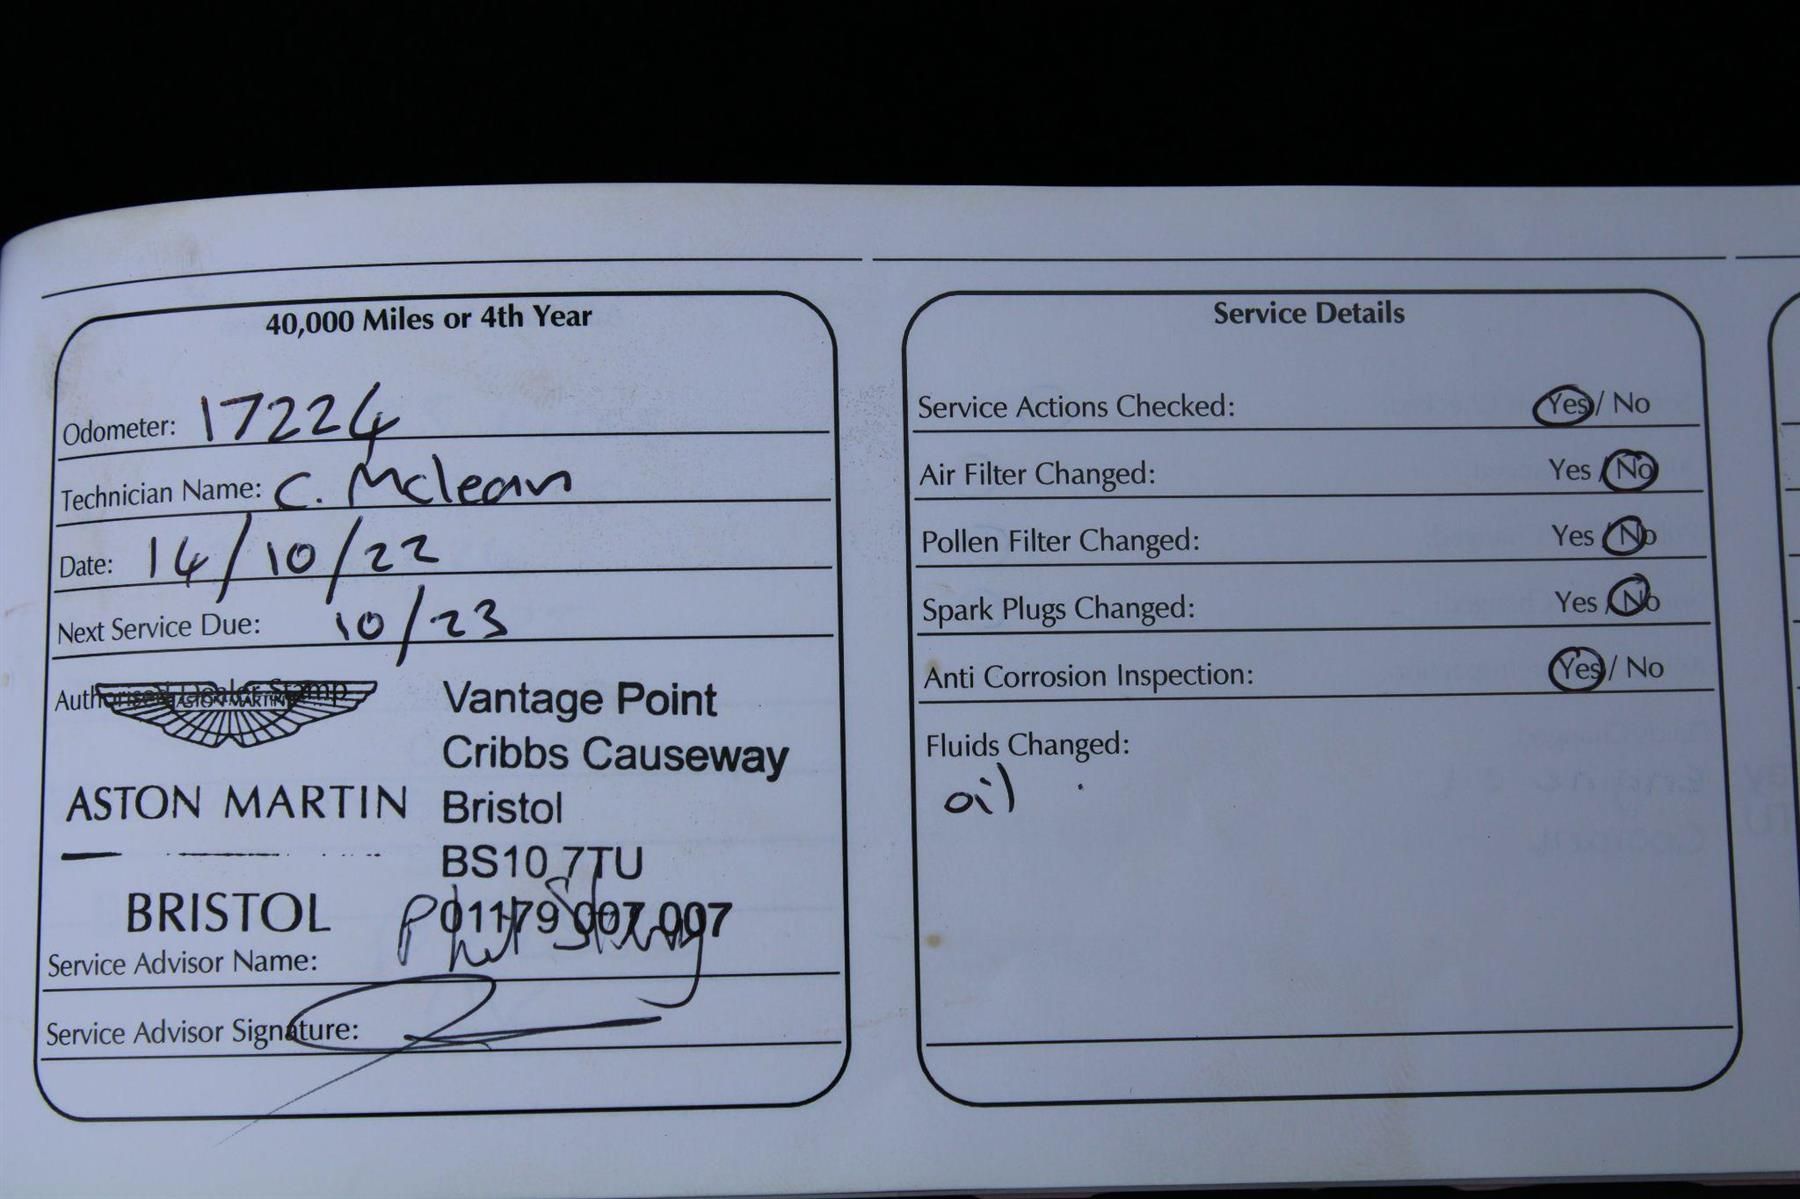 40,000 Miles or 4th Year
Odometer: 17224
Technician Name: C. Mclean
Date: 14/10/22
Next Service Due: 10/23
Authorised Dealer Stamp
ASTON MARTIN
Vantage Point
Cribbs Causeway
ASTON MARTIN
Bristol
BS10 7TU
BRISTOL
01179 007 007
Service Advisor Name:
Service Advisor Signature:
Service Details
Service Actions Checked: Yes / No
Air Filter Changed: Yes / No
Pollen Filter Changed: Yes / No
Spark Plugs Changed: Yes / No
Anti Corrosion Inspection: Yes / No
Fluids Changed:
oil